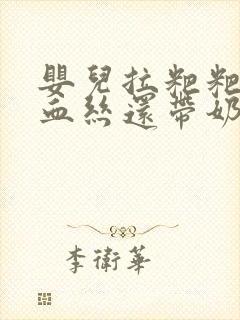 嬰兒拉粑粑
血絲還帶奶
李衛華